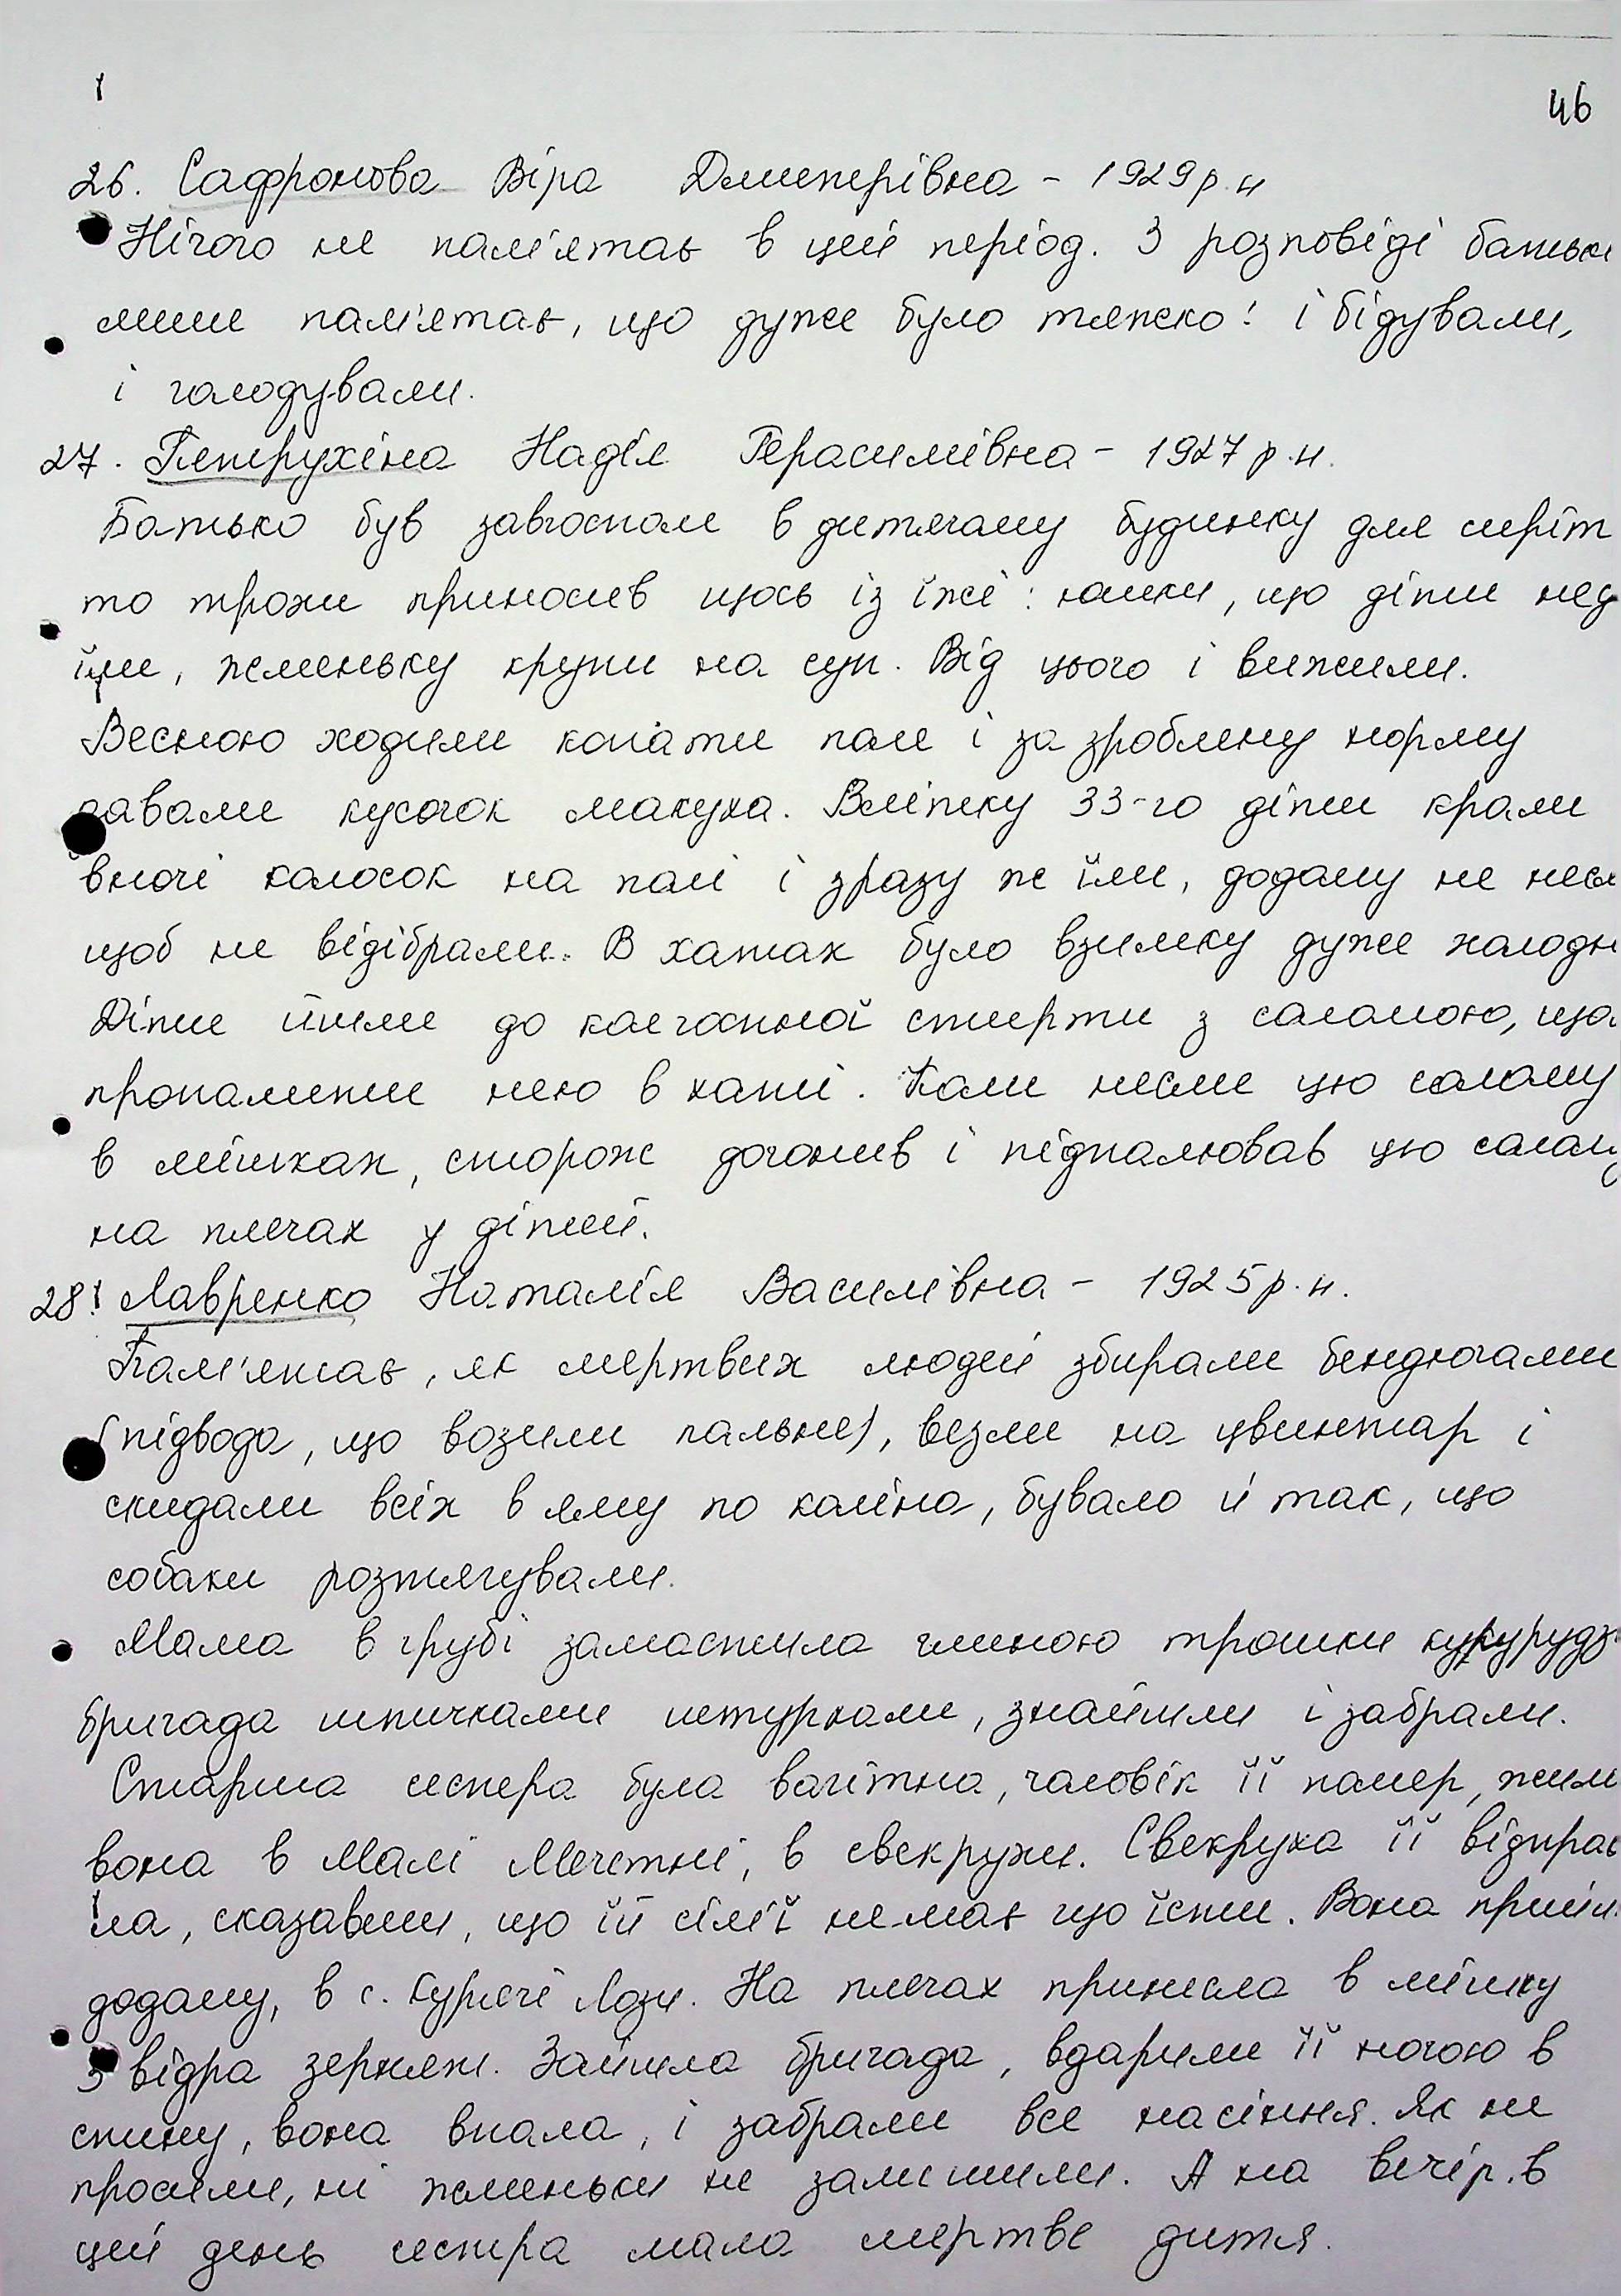 46
26. Сафронова Віра Дмитрівна - 1929 р.н
Нічого не пам'ятає в цей період. З розповіді батьків
лише пам'ятає, що дуже було тяжко: і бідували,
і голодували.
27. Петрухіна Надія Герасимівна - 1927 р.н.
Батько був завгоспом в дитячому будинку для сиріт
то трохи приносив щось із їжі: юшки, що діти нед
їли, жменьку крупи на суп. Від цього і вижили.
Весною ходили копати поле і за зроблену норму
давали кусочок макуха. Влітку 33-го діти крали
вночі колосок на полі і зразу ж їли, додому не несл
щоб не відібрали. В хатах було взимку дуже холодн
Діти йшли до колгоспної стирти з соломою, що
протопити нею в хаті. Коли несли цю солому
в мішках, сторож догонив і підпалював цю солому
на плечах у дітей.
28. Лавренко Наталія Василівна - 1925 р.н.
Пам'ятає, як мертвих людей збирали бендюгами
(підвода, що возили пальне), везли на цвинтар і
скидали всіх в яму по коліна, бувало й так, що
собаки розтягували.
Мама в грубі замастила глиною трошки кукурудз
бригада шпичками штуркали, знайшли і забрали.
Старша сестра була вагітна, чоловік її помер, жила
вона в Малі Мечетні, в свекрухи. Свекруха її відправ
ила, сказавши, що їй сім'ї немає що їсти. Вона прийш
додому, в с. Курячі Лози. На плечах принесла в мішку
3 відра зерняж. Зайшла бригада, вдарили її ногою в
спину, вона впала, і забрали все насіння. Як не
просили, ні жменьки не залишили. А на вечір в
цей день сестра мала мертве дитя.